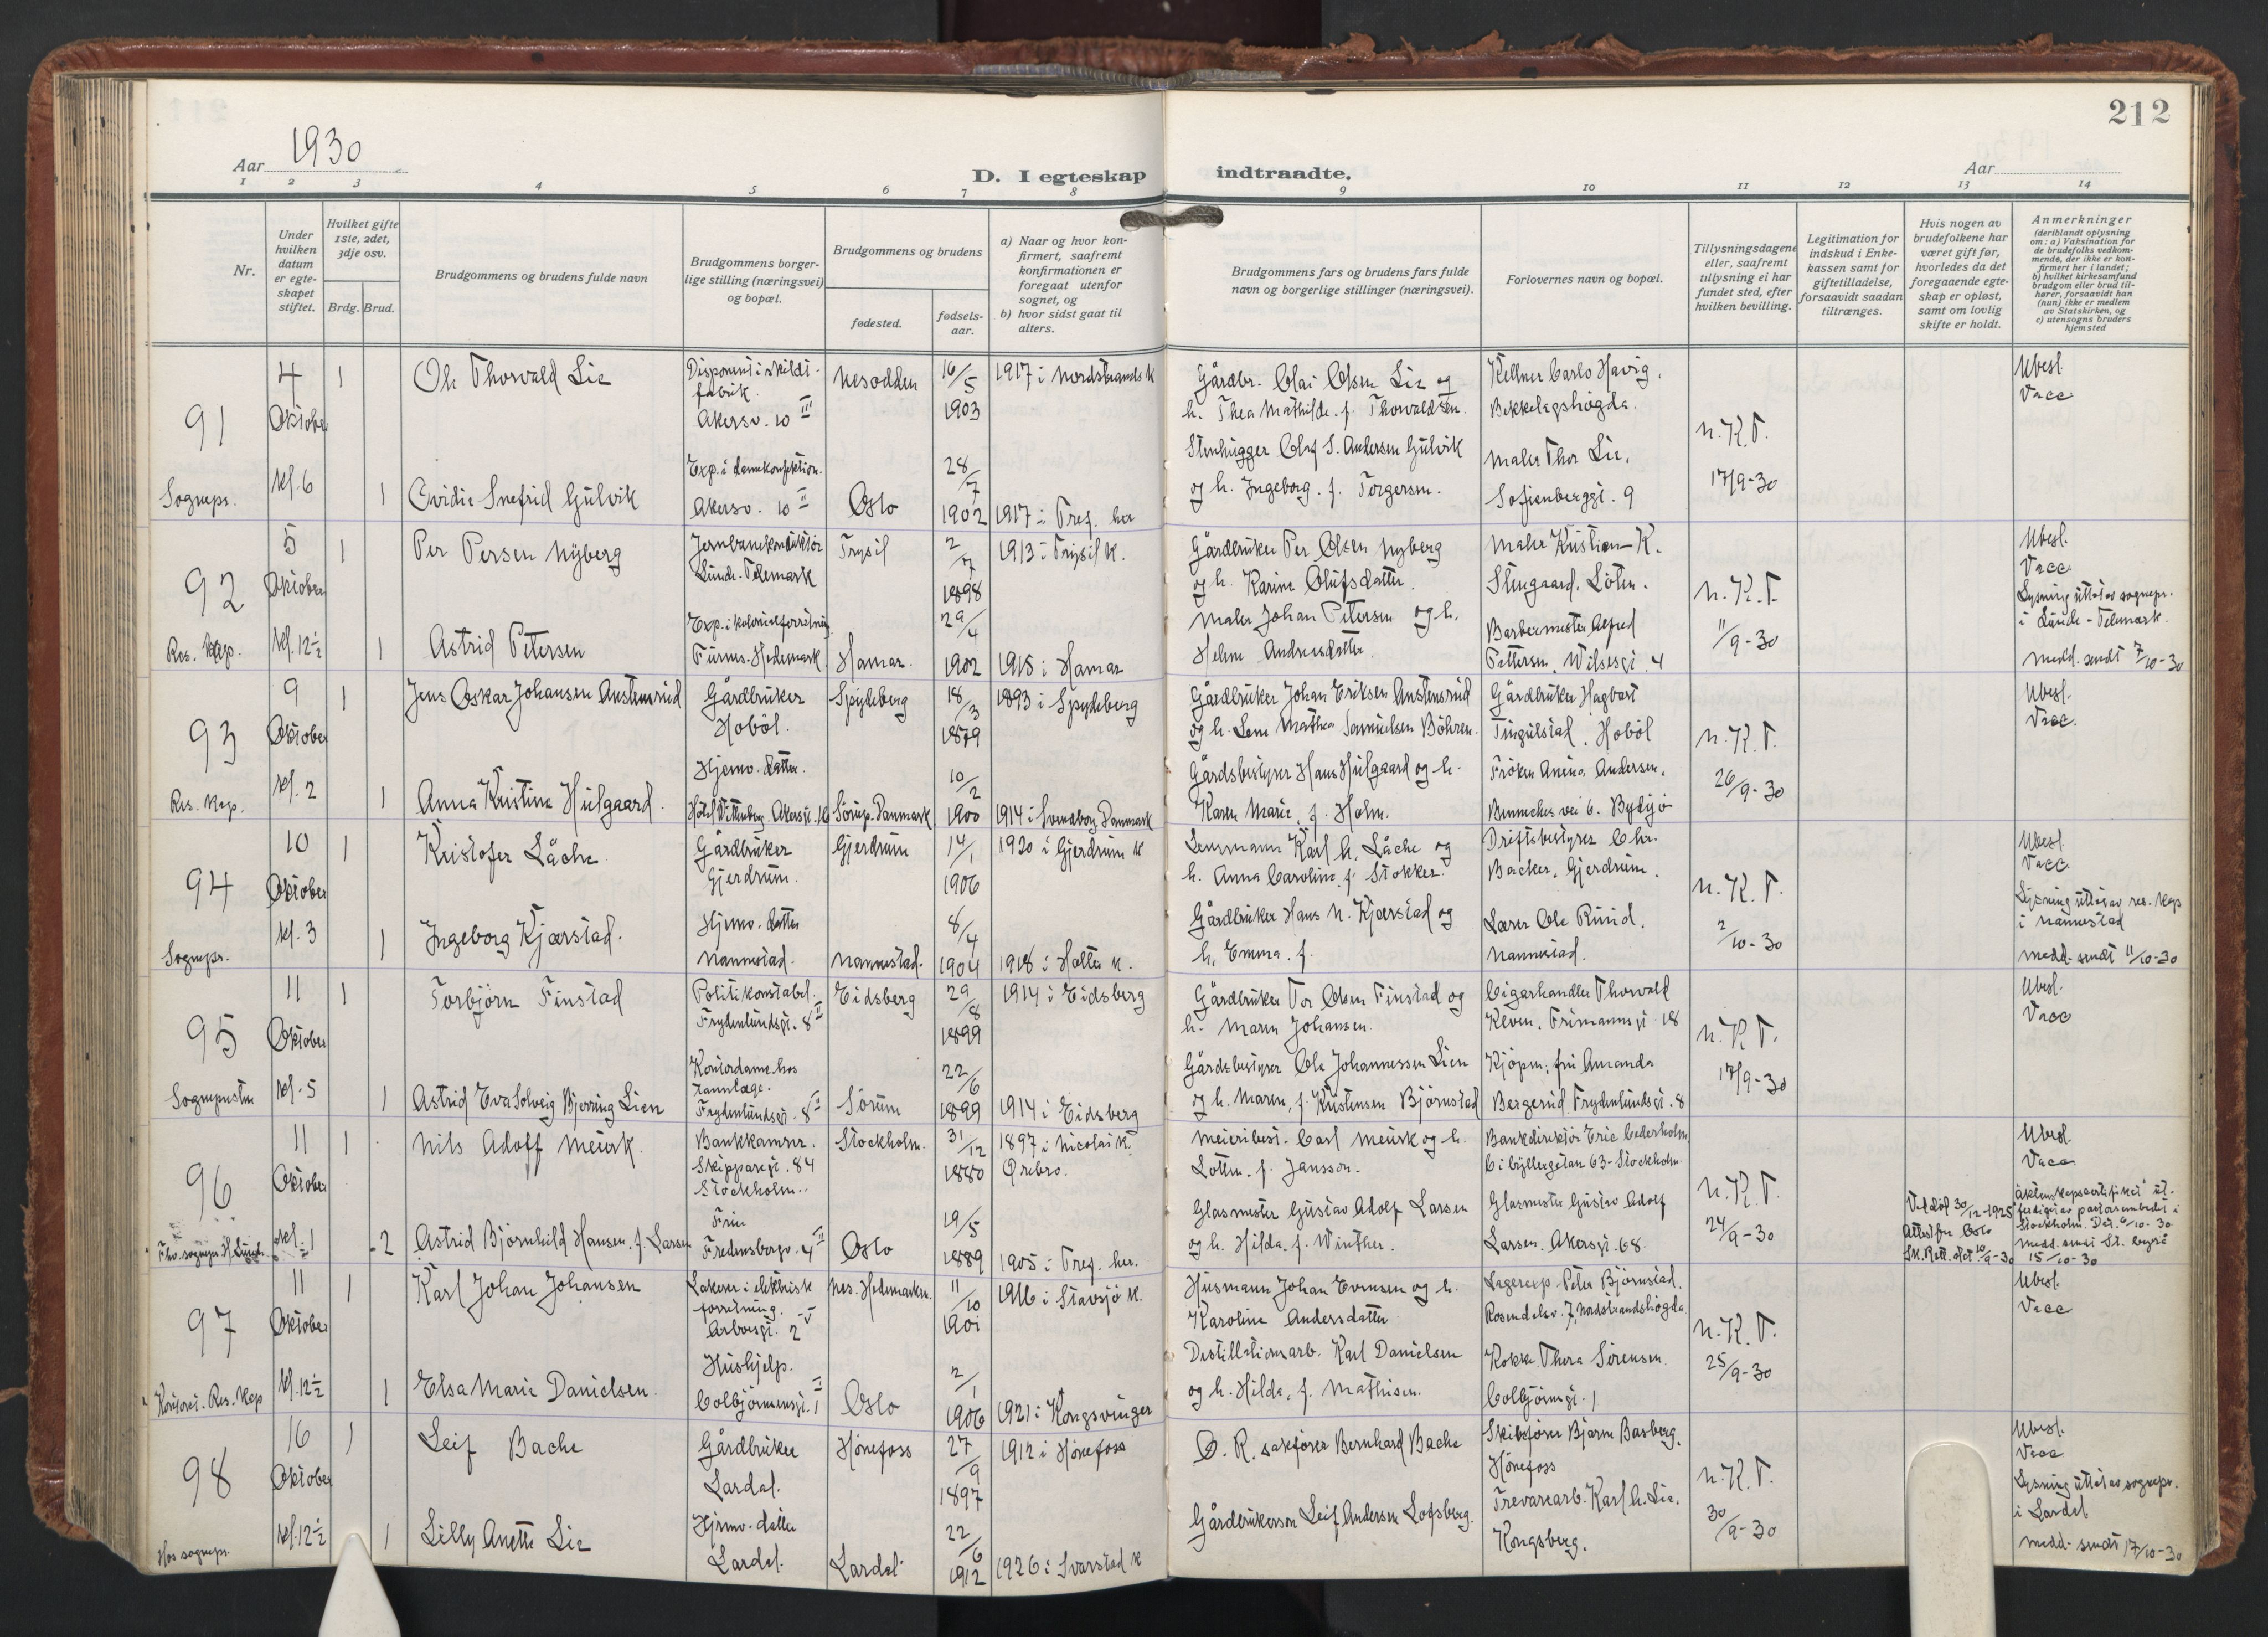 212
Aar 1930
D. I egteskap indtraadte.
Aar
1 2 3 4 5 6 7 8 9 10 11 12 13 14
Nr.
Under hvilken datum er egte-skapet stiftet.
Hvilket gifte 1ste, 2det, 3dje osv.
Brdg. Brud.
Brudgommens og brudens fulde navn
Brudgommens borger-lige stilling (næringsvei) og bopæl.
Brudgommens og brudens
fødested.
fødsels-aar.
a) Naar og hvor kon-firmert, saafremt konfirmationen er foregaat utenfor sognet, og
b) hvor sidst gaat til alters.
Brudgommens fars og brudens fars fulde navn og borgerlige stillinger (næringsvei).
Forlovernes navn og bopæl.
Tillysningsdagene eller, saafremt tillysning ei har fundet sted, efter hvilken bevilling.
Legitimation for indskud i Enke-kassen samt for giftetilladelse, forsaavidt saadan tiltrænges.
Hvis nogen av brudefolkene har været gift før, hvorledes da det foregaaende egte-skap er opløst, samt om lovlig skifte er holdt.
Anmerkninger
(deriblandt oplysning om: a) Vaksination for de brudefolks vedkom-mende, der ikke er kon-firmert her i landet; b) hvilket kirkesamfund brudgom eller brud til-hører, forsaavidt han (hun) ikke er medlem av Statskirken, og c) utensogns bruders hjemsted
91
4 Oktober
Kl. 6
Sognepr.
1 Ole Thorvald Lie
Disponent i skildt-fabrik.
Akersv. 10 III
Nesodden
16/5 1903
1917 i Nordstrands k
Gårdbr. Olai Olsen Lie og
h. Thea Mathilde f. Thorvaldsen.
Kellner Carlo Havig.
Bekkelagshøgda.
n.K.T.
17/9-30
Ubesl.
Vacc
1 Ovidie Snefrid Gulvik
Exp. i damekonfektion.
Akersv. 10 II
Oslo
28/7 1902
1917 i Tref. her
Stenhugger Olaf S. Andersen Gulvik
og h. Ingeborg. f. Torgersen.
Maler Thor Lie.
Sofienberggt. 9
92
5 Oktober
Kl. 12½
Res. Kap.
1 Per Persen Nyberg
Jernbanekonduktør
Lunde-Telemark
Trysil
2/7 1898
1913 i Trysil k.
Gårdbruker Per Olsen Nyberg
og h. Karine Olufsdatter.
Maler Kristian K.
Stengaard. Löten.
n.K.T.
11/9-30
Ubesl.
Vacc
Lysning uttat av sognepr.
i Lunde - Telemark.
medd. sendt 7/10-30
1 Astrid Petersen
Exp. i kolonialforretning
Furnes-Hedemark
Hamar.
29/4 1902
1915 i Hamar
Maler Johan Petersen og h.
Helene Andreasdatter.
Barbermester Alfred
Pettersen. Wilsesgt. 4
93
9 Oktober
Kl. 2
Res. Kap.
1 Jens Oskar Johansen Austensrud
Gårdbruker
Hobøl.
Spydeberg
18/3 1879
1893 i Spydeberg
Gårdbruker Johan Eriksen Austensrud
og h. Lene Mathea Samuelsen Böhren.
Gårdbruker Hagbart
Tingulstad. Hobøl
n.K.T.
26/9-30
Ubesl.
Vacc.
1 Anna Kristine Hulgaard.
Hjemv. datter.
Hotel Wittenberg. Akersgt. 16
Sörup. Danmark
10/2 1900
1914 i Svendborg Danmark
Gårdsbestyrer Hans Hulgaard og h.
Karen Marie, f. Holm.
Fröken Anina Andersen.
Benneches vei 6. Bygdø
94
10 Oktober
Kl. 3
Sognepr.
1 Kristofer Låche
Gårdbruker
Gjerdrum.
Gjerdrum
14/1 1906
1920 i Gjerdrum k
Lensmann Karl H. Låche og
h. Anna Caroline. f. Stokker.
Driftsbestyrer Chr.
Backer. Gjerdrum.
n.K.T.
2/10-30
Ubesl.
Vacc.
Lysning uttat av res. Kap
i Nannestad
medd. sendt 11/10-30
1 Ingeborg Kjærstad.
Hjemv. datter
Nannestad.
Nannestad.
8/4 1904
1918 i Holter k.
Gårdbruker Hans N. Kjærstad og
h. Emma. f.
Lærer Ole Ruud.
Nannestad.
95
11 Oktober
Kl. 5
Sognepresten
1 Torbjörn Finstad
Politikonstabel.
Frydenlundsgt. 8 II
Eidsberg
29/8 1899
1914 i Eidsberg
Gårdbruker Tor Olsen Finstad og
h. Maren Johansen.
Cigarhandler Thorvald
Kleven. Frimannsgt. 18
n.K.T.
17/9-30
Ubesl.
Vacc
1 Astrid Eva Solveig Bjerring Lien
Kontordame hos
tannlæge.
Frydenlundsgt. 8 II
Sörum
22/6 1899
1914 i Eidsberg
Gårdsbestyrer Ole Johannessen Lien
og h. Maren, f. Kristensen Björnstad
Kjöpm. fru Amanda
Bergerud. Frydenlundsgt. 8
96
11 Oktober
Kl. 1
1 Nils Adolf Meurk
Bankkamrer.
Skipparegt. 84
Stockholm.
Stockholm.
31/12 1880
1897 i Nicolai k.
Örebro.
Meieribest. Carl Meurk og h.
Lotten. f. Jansson.
Bankdirektör Eric Cederholm
63-Stockholm
n.K.T.
24/9-30
Ved död 30/12-1925
Attest fra Oslo
Sk. Rett. dat 10/9-30
Ubesl.
Vacc
äktenskapscertifikat ut-
ferdiget av pastorsembedet i
Stockholm. Dat. 6/10-30
medd. sendt
15/10-30
2 Astrid Björnhild Hansen. f. Larsen
Frue
Fredensborgv. 4 II
Oslo
19/5 1889
1905 i Tref. her.
Glasmester Gustav Adolf Larsen
og h. Hilda. f. Winther.
Glasmester Gustav Adolf
Larsen. Akersgt. 68.
97
11 Oktober
Kl. 12½
Kontoret. Res. Kap
1 Karl Johan Johansen
Lakerer i elektrisk
forretning.
Arbosgt. 2 V
Nes. Hedemarken.
11/10 1901
1916 i Stavsjö k.
Husmann Johan Evensen og h.
Karoline Andersdatter
Lagerexp. Peter Björnstad.
Rosendalsv. 7, Nordstrandshögda
n.K.T.
25/9-30
Ubesl.
Vacc
1 Elsa Marie Danielsen.
Hushjelp.
Colbjörnsensgt. 1
Oslo
2/1 1906
1921 i Kongsvinger
Destillationsarb. Karl Danielsen
og h. Hilda, f. Mathisen.
Kokke Thora Sörensen.
Colbjörnsgt. 1
98
16 Oktober
Kl. 12½
Hos sognepr.
1 Leif Bache
Gårdbruker
Lardal.
Hönefoss
27/9 1897
1912 i Hönefoss
O. R. sakförer Bernhard Bache
Skibsförer Bjarne Basberg.
Hönefoss
n.K.T.
30/9-30
Ubesl.
Vacc
Lysning uttat av sognepr.
i Lardal
medd. sendt 17/10-30
1 Lilly Anette Lie
Hjemv. datter
Lardal.
Lardal.
22/6 1912
1926 i Svarstad k
Gårdbrukersön Leif Andersen Lofsberg.
Trevarearb. Karl H. Lie.
Kongsberg.